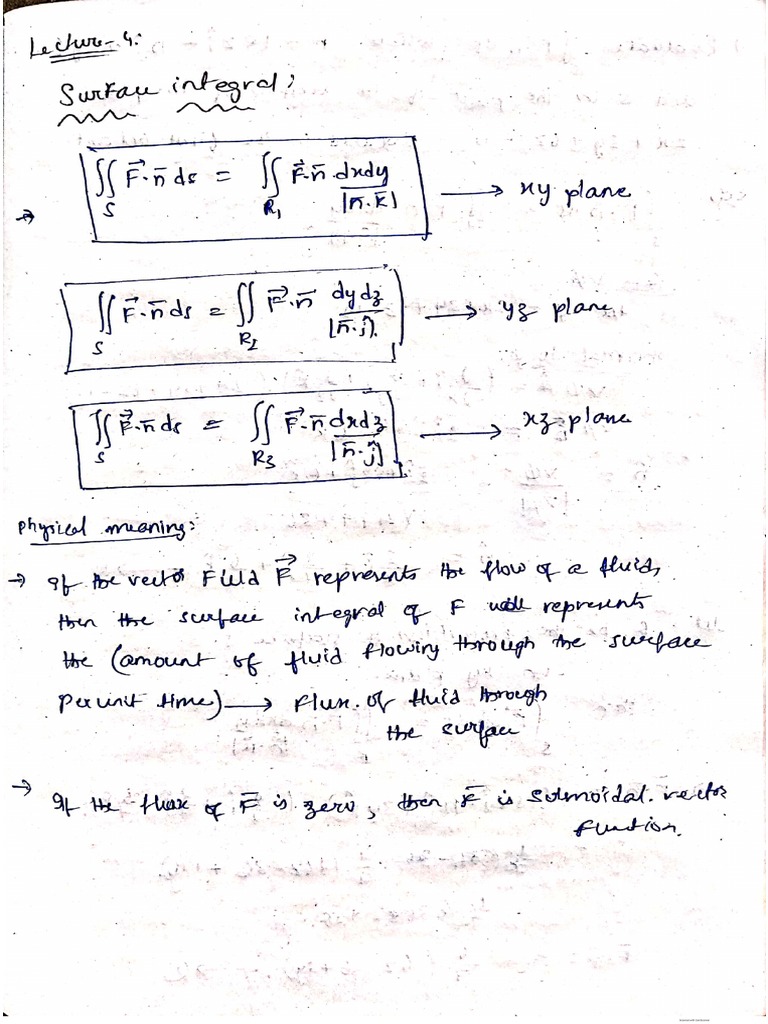 Lecture-4:
Surface integral:
→ ∬_S F⃗·n̄ ds = ∬_R₁ F⃗·n̄ dxdy/|n̄·k̄| ⟶ xy plane
∬_S F⃗·n̄ ds = ∬_R₂ F⃗·n̄ dydz/|n̄·ĵ| ⟶ yz plane
∬_S F⃗·n̄ ds = ∬_R₃ F⃗·n̄ dxdz/|n̄·ĵ| ⟶ xz plane
Physical meaning:
→ If the vector Field F⃗ represents the flow of a fluid,
then the surface integral of F will represents
the (amount of fluid flowing through the surface
per unit time) ⟶ Flux of fluid through
the surface
→ If the flux of F̄ is zero, then F̄ is solenoidal vector
Function.